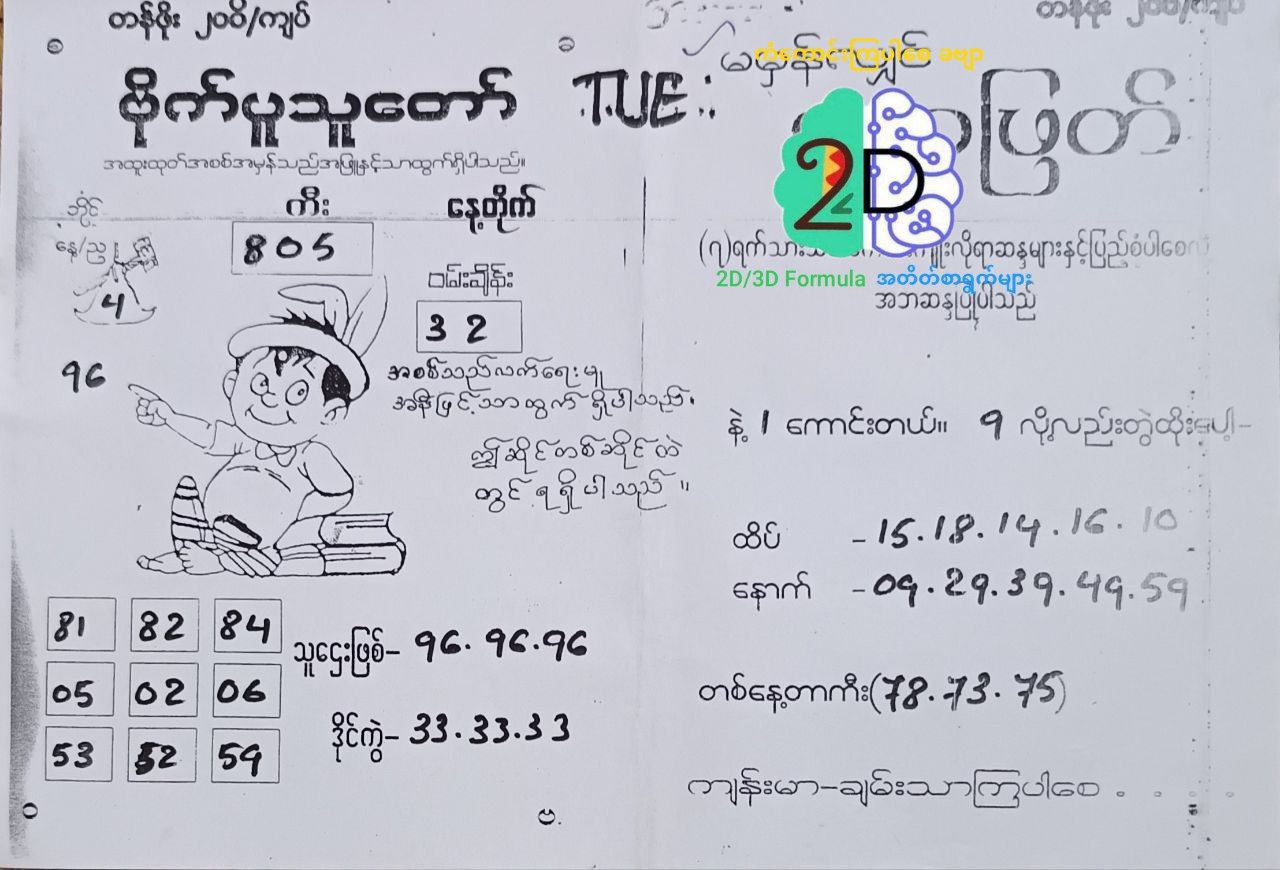 တန်ဖိုး ၂၀၀ိ/ကျပ်
ဗိုက်ပူသူတော်
အထူးထုတ်အစစ်အမှန်သည်အဖြူနှင့်သာထွက်ရှိပါသည်။
ဘိုင့်
နေ့/ည
4
ကီး
805
နေ့တိုက်
ဝမ်းချိန်း
32
96
အစစ်သည်လက်ရေးမူ
အနီဖြင့်သာထွက်ရှိပါသည်.
ဤဆိုင်တစ်ဆိုင်ထဲ
တွင် ရရှိပါသည် ။
81 82 84
05 02 06
53 52 59
သူဌေးဖြစ်– 96. 96.96
ဒိုင်ကွဲ– 33.33.33
တန်ဖိုး ၂၀၀ိ/ကျပ်
TUE :
မမှန်လျှင်
ကံကောင်းကြပါစေ ခဗျာ
2D
2D/3D Formula အတိတ်စာရွက်များ
အဘဆန္ဒပြုပါသည်
နဲ့ 1 ကောင်းတယ်။ 9 လို့လည်းတွဲထိုးပေါ့–
ထိပ် –15.18.14.16.10
နောက် –09.29.39.49.59
တစ်နေ့တာကီး(78.73.75)
ကျန်းမာ–ချမ်းသာကြပါစေ . . . .